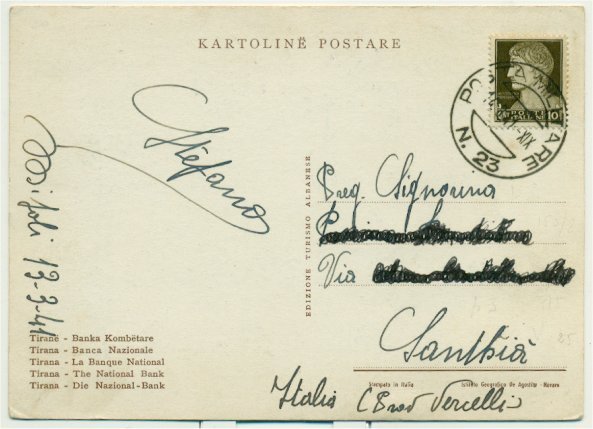 KARTOLINË POSTARE
10
N. 23
Stefano
13-3-41
EDIZIONE TURISMO ALBANESE
Preg. Signorina
Via
Santhià
Italia (Prov Vercelli)
Tiranë - Banka Kombëtare
Tirana - Banca Nazionale
Tirana - La Banque National
Tirana - The National Bank
Tirana - Die Nazional-Bank
Stampato in Italia
Istituto Geografico De Agostini - Novara